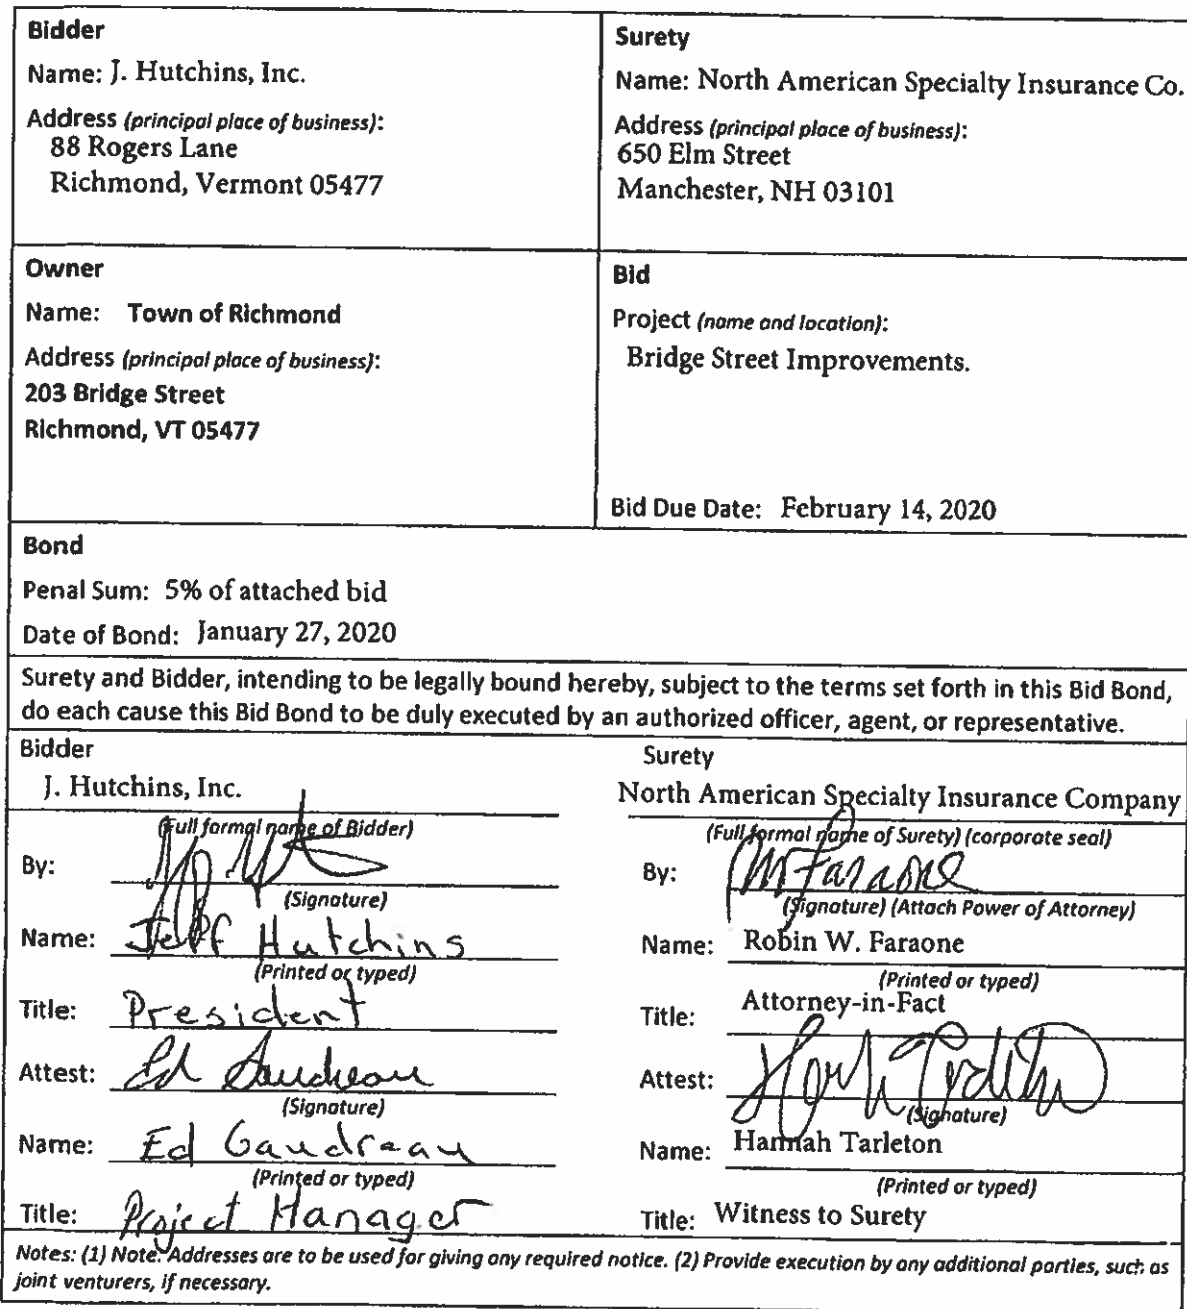 Bidder
Name: J. Hutchins, Inc.
Address (principal place of business):
88 Rogers Lane
Richmond, Vermont 05477
Surety
Name: North American Specialty Insurance Co.
Address (principal place of business):
650 Elm Street
Manchester, NH 03101
Owner
Name: Town of Richmond
Address (principal place of business):
203 Bridge Street
Richmond, VT 05477
Bid
Project (name and location):
Bridge Street Improvements.
Bid Due Date: February 14, 2020
Bond
Penal Sum: 5% of attached bid
Date of Bond: January 27, 2020
Surety and Bidder, intending to be legally bound hereby, subject to the terms set forth in this Bid Bond,
do each cause this Bid Bond to be duly executed by an authorized officer, agent, or representative.
Bidder
J. Hutchins, Inc.
(Full formal name of Bidder)
By:
(Signature)
Name: Jeff Hutchins
(Printed or typed)
Title: President
Attest: Ed Gaudreau
(Signature)
Name: Ed Gaudreau
(Printed or typed)
Title: Project Manager
Surety
North American Specialty Insurance Company
(Full formal name of Surety) (corporate seal)
By: Faraone
(Signature) (Attach Power of Attorney)
Name: Robin W. Faraone
(Printed or typed)
Title: Attorney-in-Fact
Attest:
(Signature)
Name: Hannah Tarleton
(Printed or typed)
Title: Witness to Surety
Notes: (1) Note: Addresses are to be used for giving any required notice. (2) Provide execution by any additional parties, such as
joint venturers, if necessary.